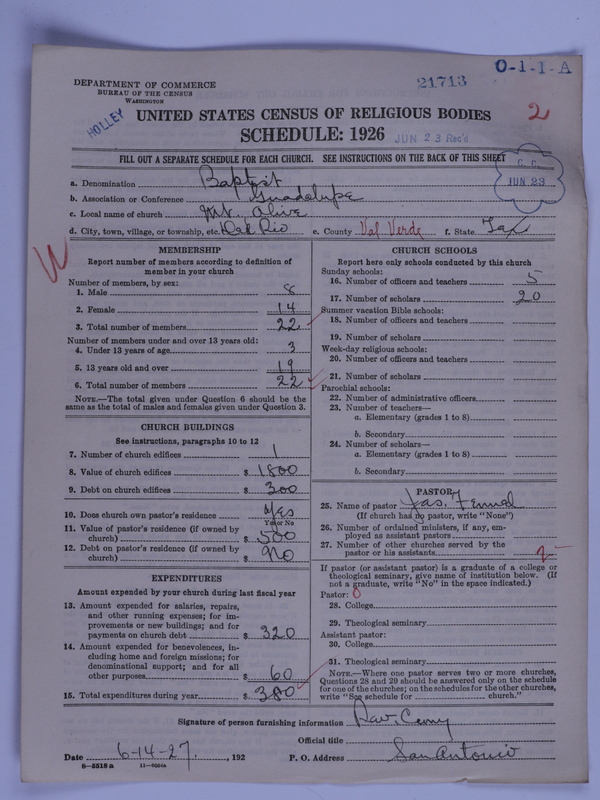 O-1-1-A
21713
DEPARTMENT OF COMMERCE
BUREAU OF THE CENSUS
WASHINGTON
HOLLEY
2
UNITED STATES CENSUS OF RELIGIOUS BODIES
SCHEDULE: 1926
JUN 23 Rec'd
FILL OUT A SEPARATE SCHEDULE FOR EACH CHURCH. SEE INSTRUCTIONS ON THE BACK OF THIS SHEET
C. C.
JUN 23
a. Denomination Baptist
b. Association or Conference Guadalupe
c. Local name of church Mt. Olive
d. City, town, village, or township, etc. Del Rio e. County Val Verde f. State Tex
MEMBERSHIP
Report number of members according to definition of
member in your church
Number of members, by sex:
1. Male 8
2. Female 14
3. Total number of members 22
Number of members under and over 13 years old:
4. Under 13 years of age 3
5. 13 years old and over 19
6. Total number of members 22
NOTE.—The total given under Question 6 should be
same as the total of males and females given under Question 3.
CHURCH BUILDINGS
See instructions, paragraphs 10 to 12
7. Number of church edifices 1
8. Value of church edifices $ 1800
9. Debt on church edifices $ 300
10. Does church own pastor's residence Yes
Yes or No
11. Value of pastor's residence (if owned by
church) $ 500
12. Debt on pastor's residence (if owned by
church) $ no
EXPENDITURES
Amount expended by your church during last fiscal year
13. Amount expended for salaries, repairs,
and other running expenses; for im-
provements or new buildings; and for
payments on church debt $ 320
14. Amount expended for benevolences, in-
cluding home and foreign missions; for
denominational support; and for all
other purposes $ 60
15. Total expenditures during year $ 380
CHURCH SCHOOLS
Report here only schools conducted by this church
Sunday schools:
16. Number of officers and teachers 5
17. Number of scholars 20
Summer vacation Bible schools:
18. Number of officers and teachers
19. Number of scholars
Week-day religious schools:
20. Number of officers and teachers
21. Number of scholars
Parochial schools:
22. Number of administrative officers
23. Number of teachers—
a. Elementary (grades 1 to 8)
b. Secondary
24. Number of scholars—
a. Elementary (grades 1 to 8)
b. Secondary
PASTOR
25. Name of pastor Jas.
(If church has no pastor, write "None")
26. Number of ordained ministers, if any, em-
ployed as assistant pastors
27. Number of other churches served by the
pastor or his assistants
If pastor (or assistant pastor) is a graduate of a college or
theological seminary, give name of institution below. (If
not a graduate, write "No" in the space indicated.)
Pastor: 0
28. College
29. Theological seminary
Assistant pastor:
30. College
31. Theological seminary
NOTE.—Where one pastor serves two or more churches,
Questions 28 and 29 should be answered only on the schedule
for one of the churches; on the schedules for the other churches,
write "See schedule for church."
Signature of person furnishing information
Official title
Date 6-14-27, 192 P. O. Address San Antonio
8-5518 a